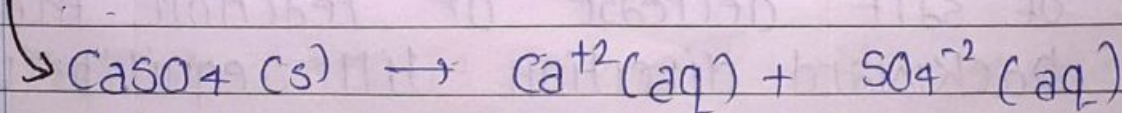 CaSO4 (s) → Ca⁺² (aq) + SO4⁻² (aq)